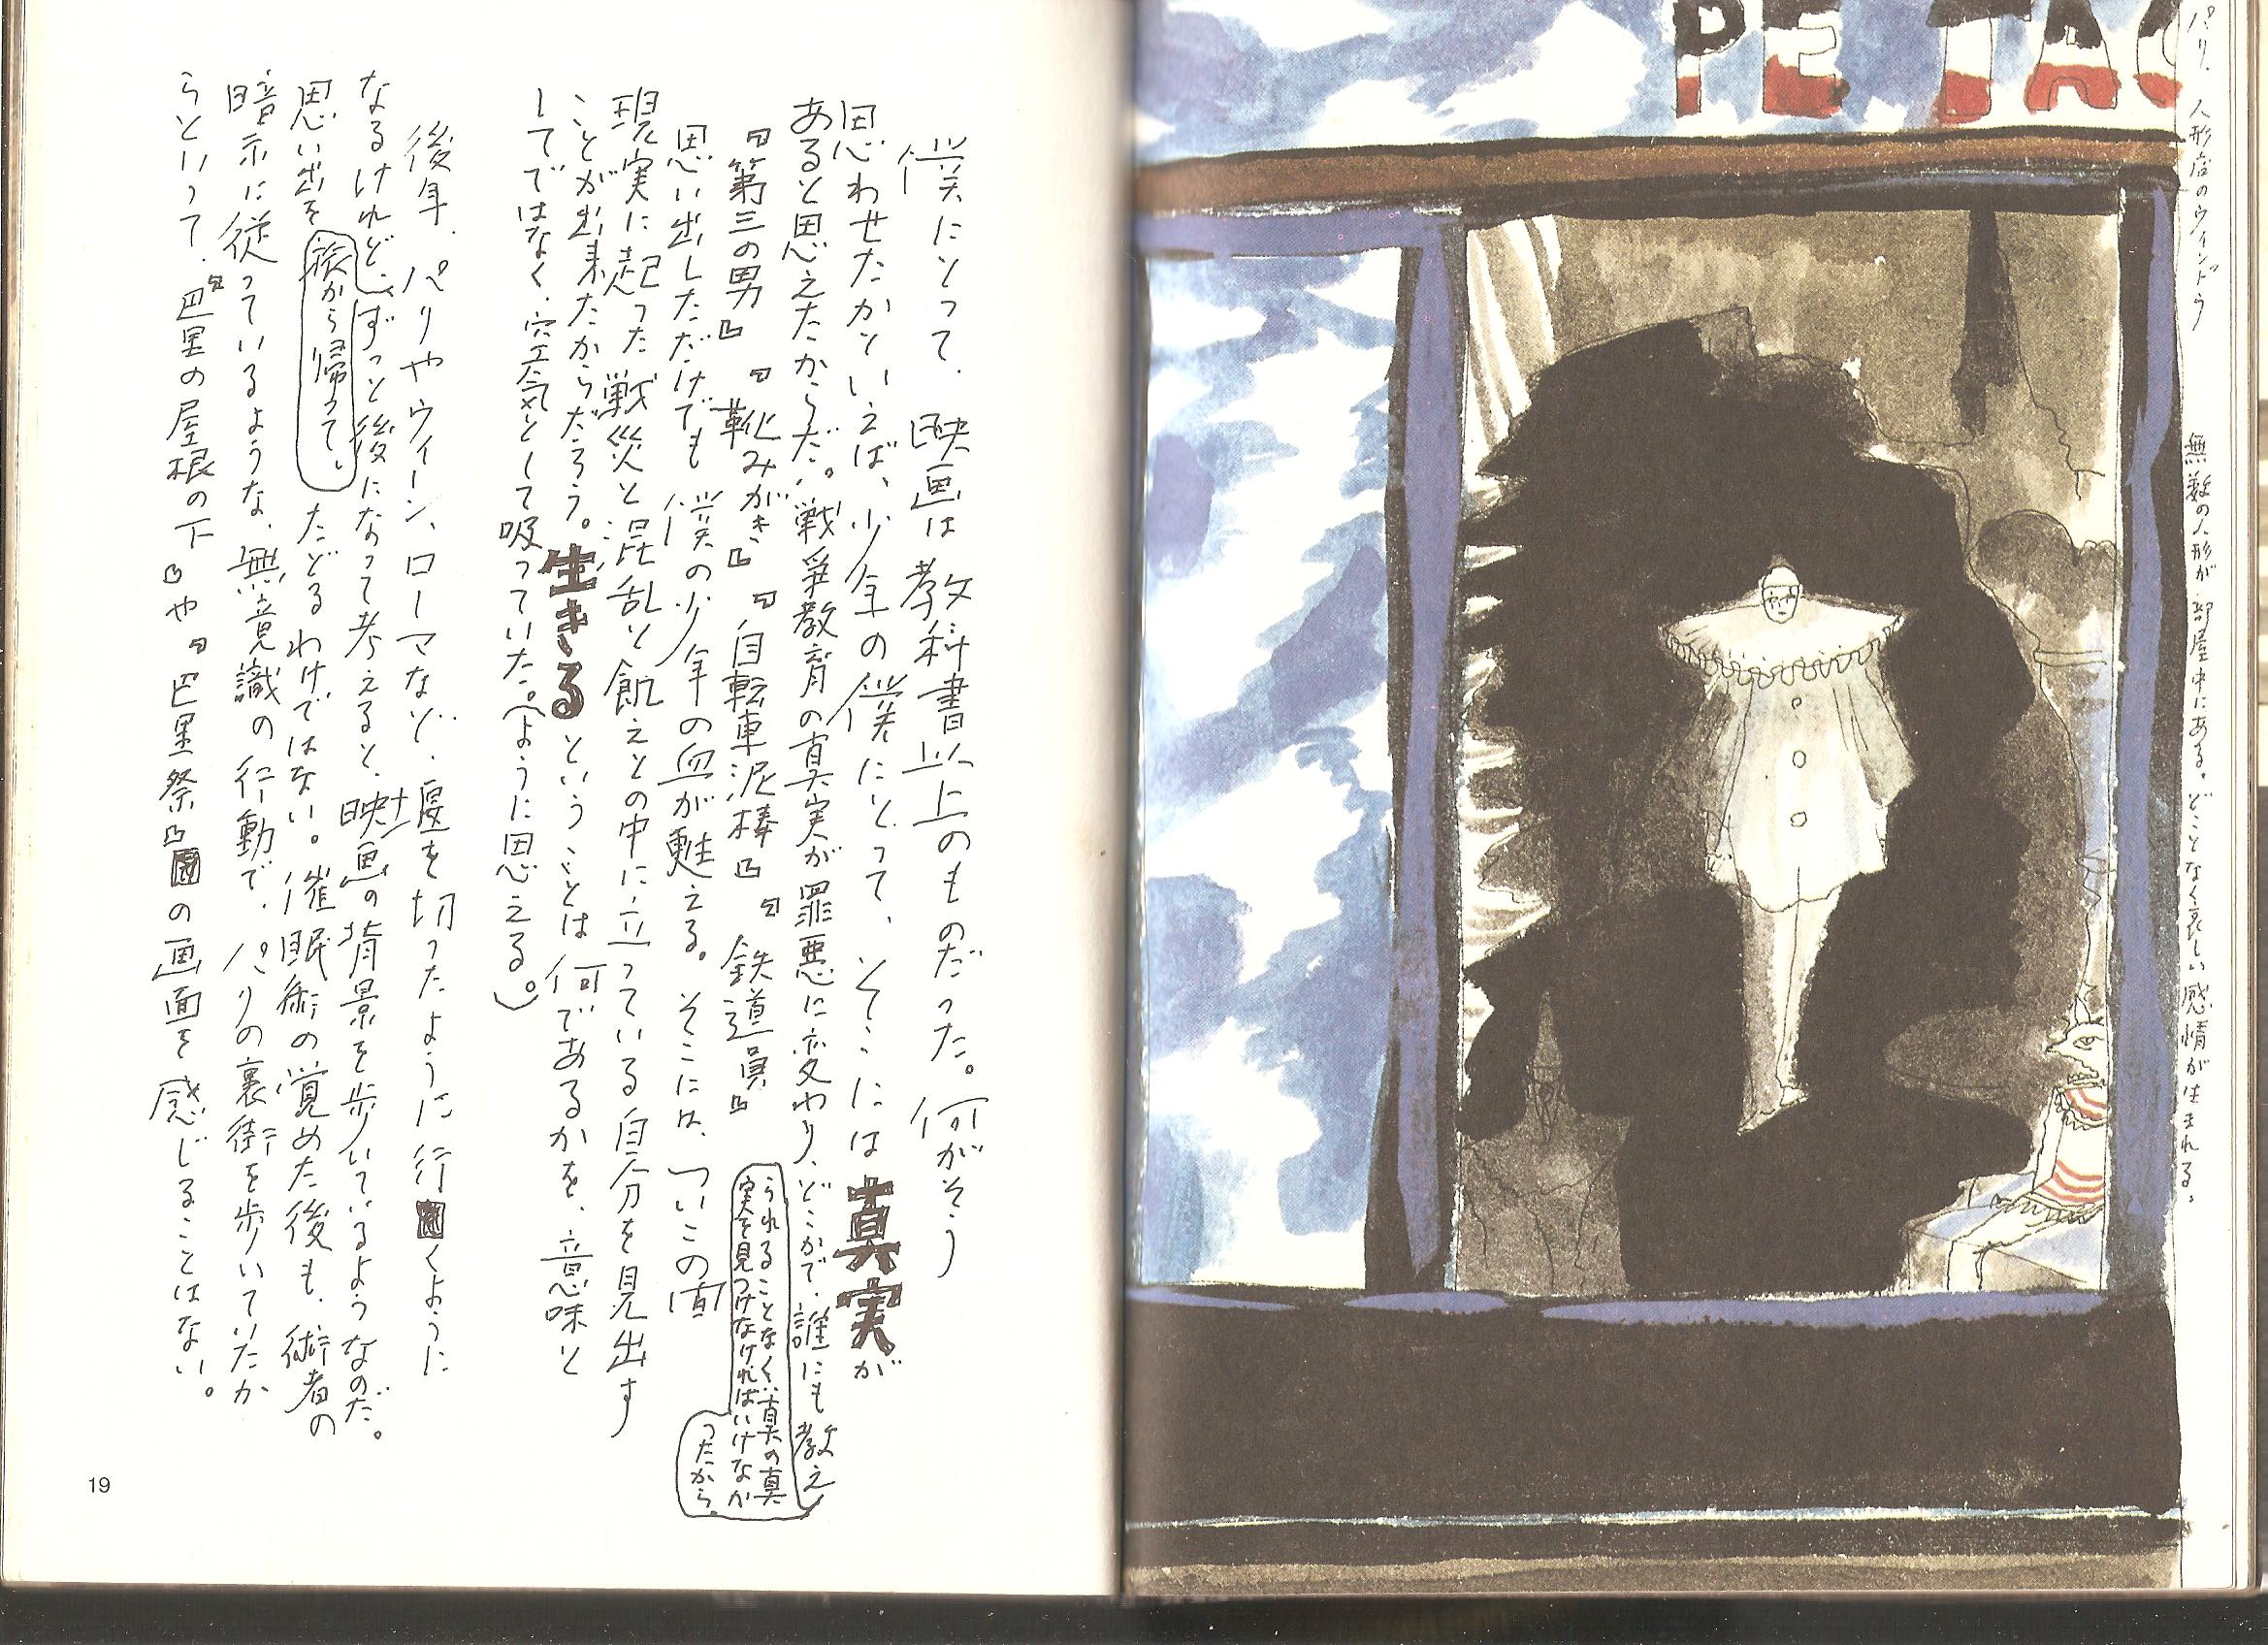 PE TAC
パリ、人形店のウィンドウ
無数の人形が、部屋中にある。どことなく哀しい感情が生まれる。
僕にとって、映画は教科書以上のものだった。何がそう
思わせたかといえば、少年の僕にとって、そこには真実が
あると思えたからだ。戦争教育の真実が罪悪に変わり、どこかで、誰にも教え
られることなく、真の真
実を見つけなければいけなか
ったから。
『第三の男』『靴みがき』『自転車泥棒』『鉄道員』
思い出しただけでも僕の少年の血が甦える。そこには、ついこの間
現実に起った戦災と混乱と飢えとの中に立っている自分を見出す
ことが出来たからだろう。生きるということは何であるかを、意味と
してではなく、空気として吸っていた。(ように思える。)
後年、パリやウィーン、ローマなど、堰を切ったように行くように
なるけれど、ずっと後になって考えると、映画の背景を歩いているようなのだ。
思い出を旅から帰って、たどるわけではない。催眠術の覚めた後も、術者の
暗示に従っているような、無意識の行動で、パリの裏街を歩いていたか
らといって、『巴里の屋根の下』や『巴里祭』の画面を感じることはない。
19